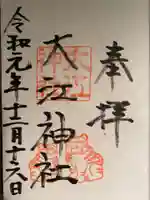 奉拝
大江神社
令和元年十二月十六日